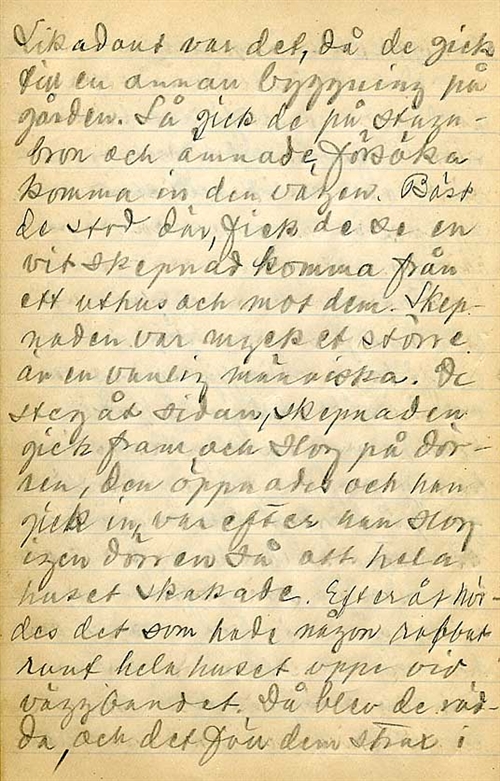 Likadant var det, då de gick
till en annan byggning på
gården. Så gick de på stuzu-
bron och ämnade försöka
komma in den vägen. Bäst
de stod där, fick de se en
vit skepnad komma från
ett uthus och mot dem. Skep-
naden var mycket större
än en vanlig människa. De
steg åt sidan, skepnaden
gick fram och slog på dör-
ren, den öppnades och han
gick in, varefter han slog
igen dörren så att hela
huset skakade. Efteråt hör-
des det som hade någon
runt hela huset uppe vid
väggbandet. Då blev de räd-
da, och det för dem strax i